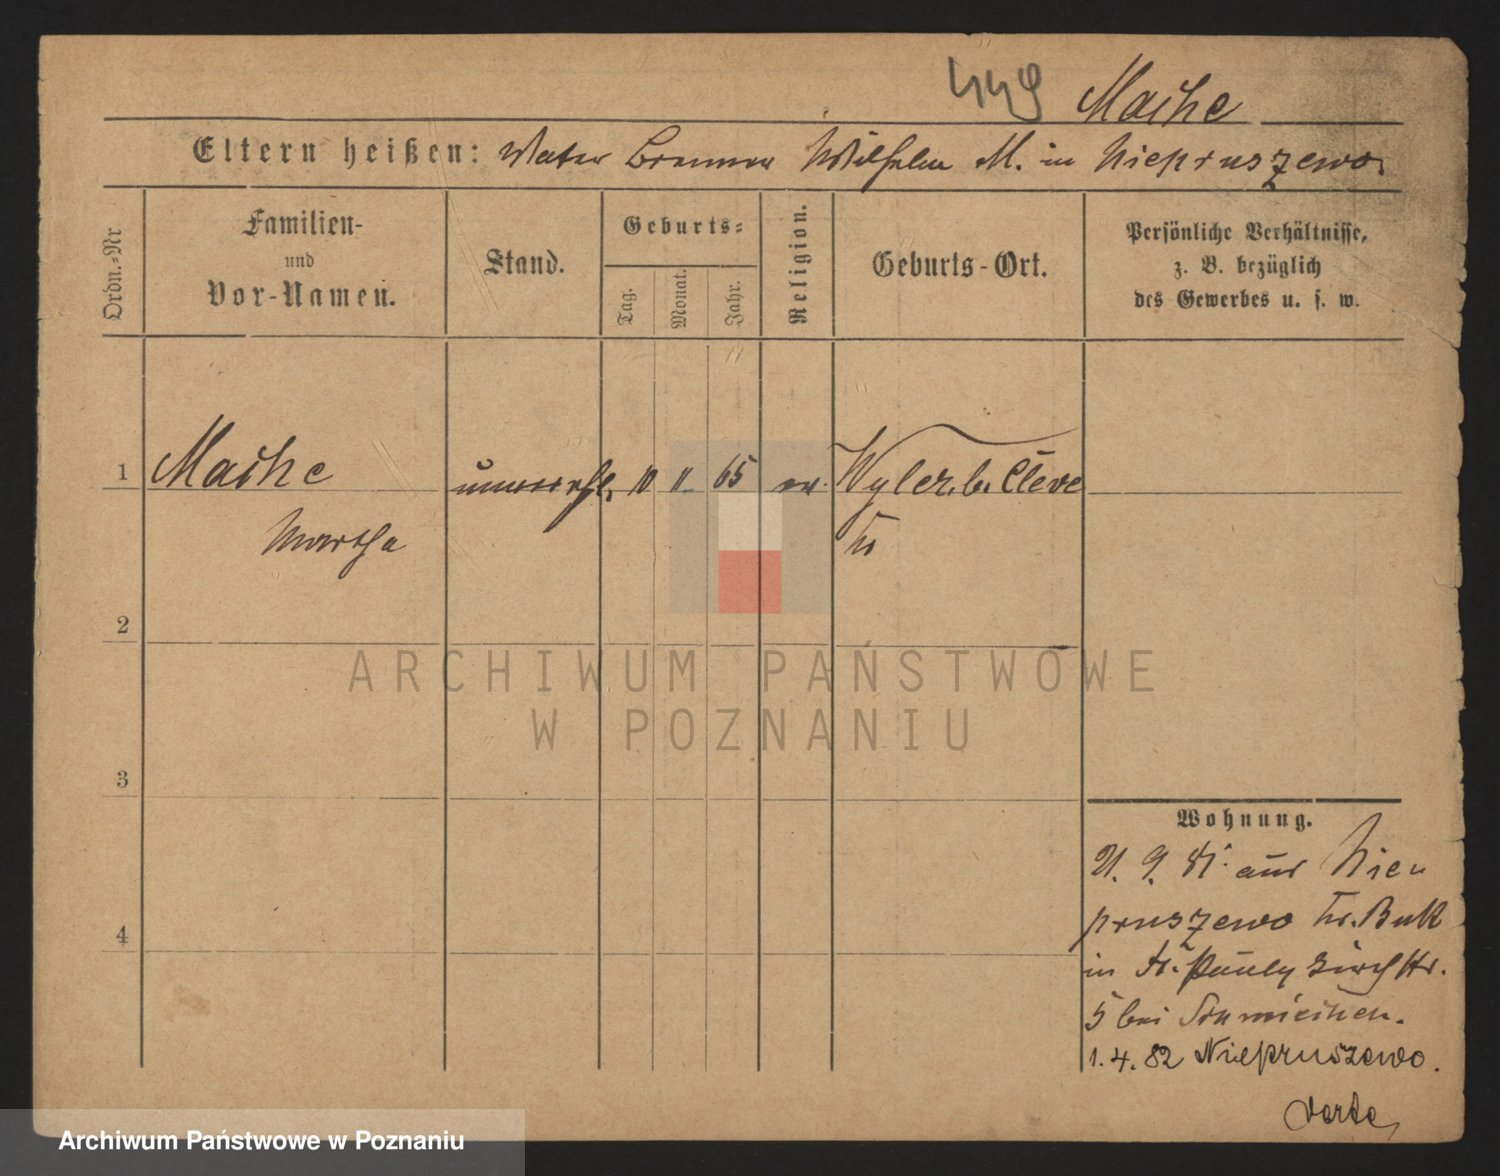 449 Maihe
Eltern heißen: Vater Brenner Wilhelm M. in Niepruszewo.
Ordn.-Nr
Familien-
und
Vor-Namen.
Stand.
Geburts-
Tag.
Monat.
Jahr.
Religion.
Geburts-Ort.
Persönliche Verhältnisse,
z. B. bezüglich
des Gewerbes u. s. w.
1 Maihe unverehl. 10 11 65 ev. Wyler b. Cleve
Martha
2
ARCHIWUM PAŃSTWOWE
W POZNANIU
3
4
Wohnung.
21. 9. 81 aus Nie
pruszewo Kr. Buk
in St. Pauly Kirchstr.
5 bei
1. 4. 82 Niepruszewo.
verte
Archiwum Państwowe w Poznaniu